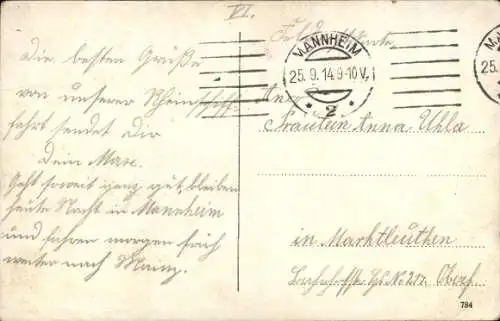 VI.
Feldpostkarte
MANNHEIM
25.9.14.9-10V.
* 2 *
Die besten Grüße
von unserer Rheinschiff-
fahrt sendet Dir
Dein Max.
Geht soweit ganz gut, bleiben
heute Nacht in Mannheim
und fahren morgen früh
weiter nach Mainz.
An
Fräulein Anna Uhla
in Marktleuthen
Bahnhofstr. Hs. No 217. Oberf.
784
MA
25.